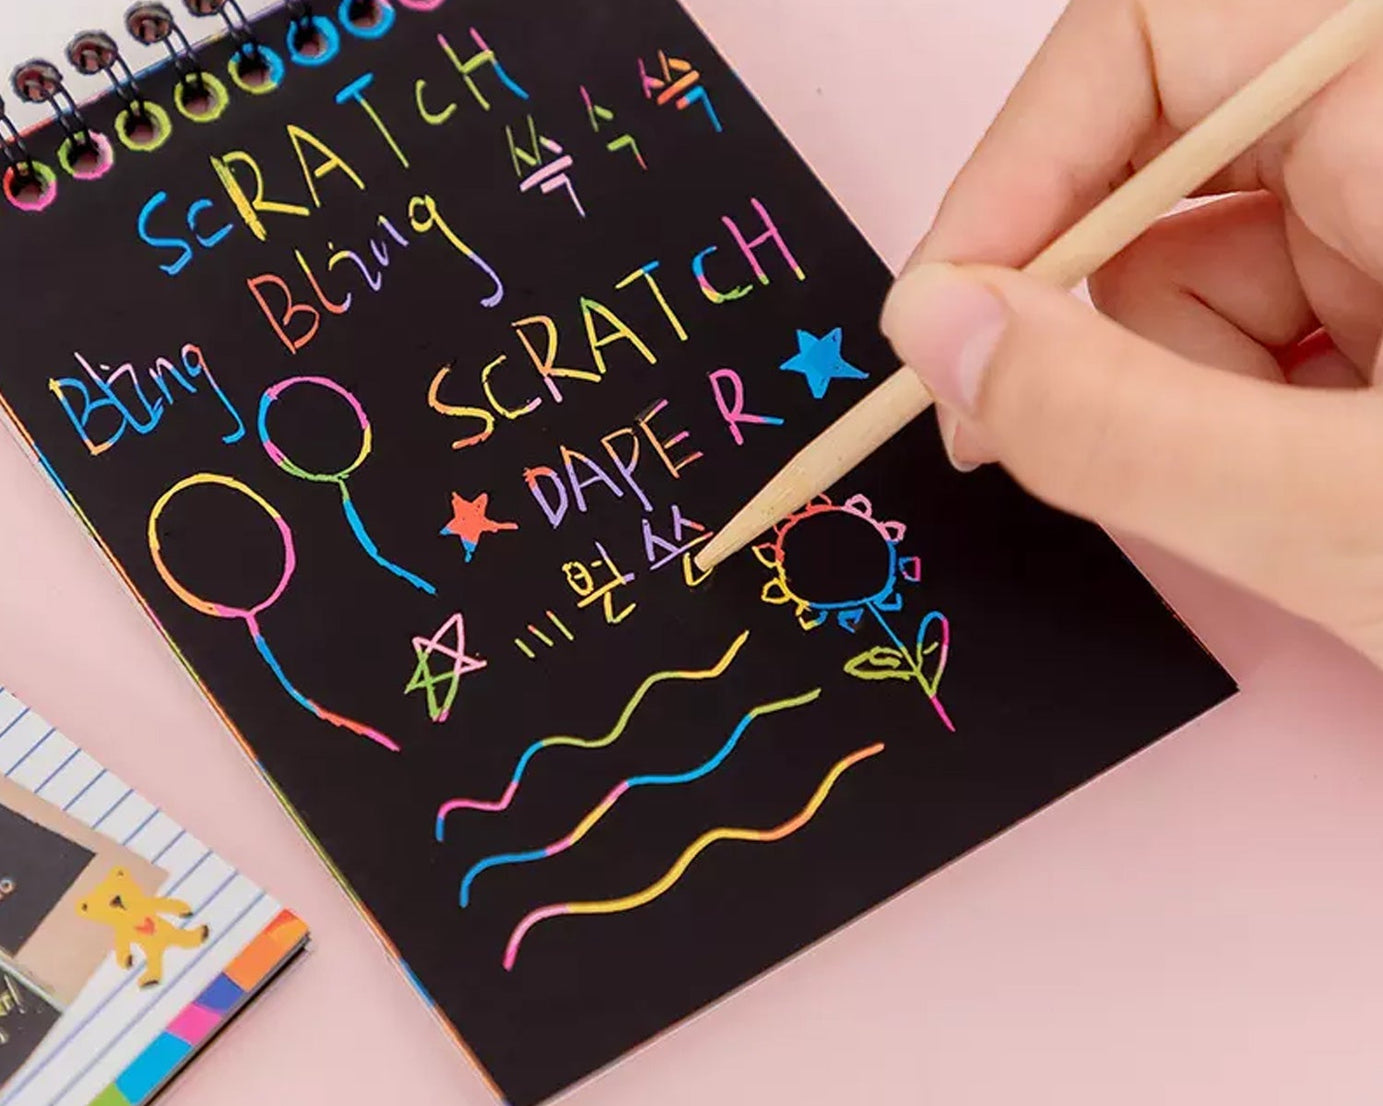 SCRATCH 쓱 슥 쓱
Bling
Bling
SCRATCH
DAPER